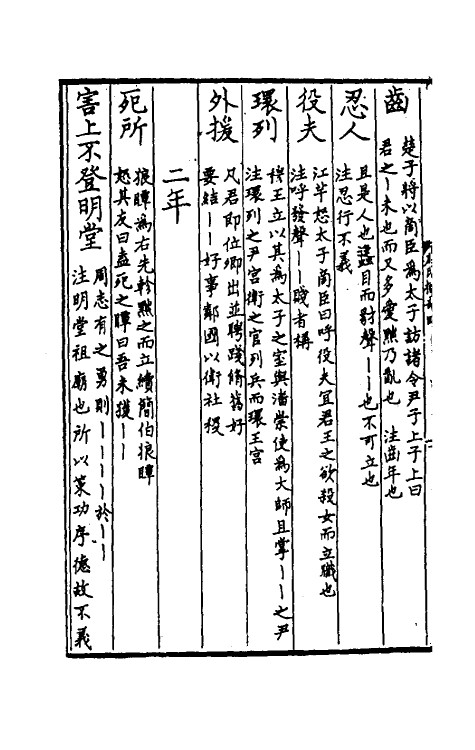 齒
楚子將以商臣爲太子訪諸令尹子上子上曰
君之丨未也而又多愛黜乃亂也 注齒年也
忍人
且是人也蠭目而豺聲丨丨也不可立也
注忍行不義
役夫
江羋怒太子商臣曰呼役夫宜君王之欲殺女而立職也
注呼發聲丨丨賤者稱
環列
穆王立以其爲太子之室與潘崇使爲大師且掌丨丨之尹
注環列之尹宮衛之官列兵而環王宮
外援
凡君即位卿出並聘踐脩舊好
要結丨丨好事鄰國以衛社稷
二年
死所
狼瞫爲右先軫黜之而立續簡伯狼瞫
怒其友曰盍死之瞫曰吾未獲丨丨
害上不登明堂
周志有之勇則丨丨丨丨於丨丨
注明堂祖廟也所以策功序德故不義